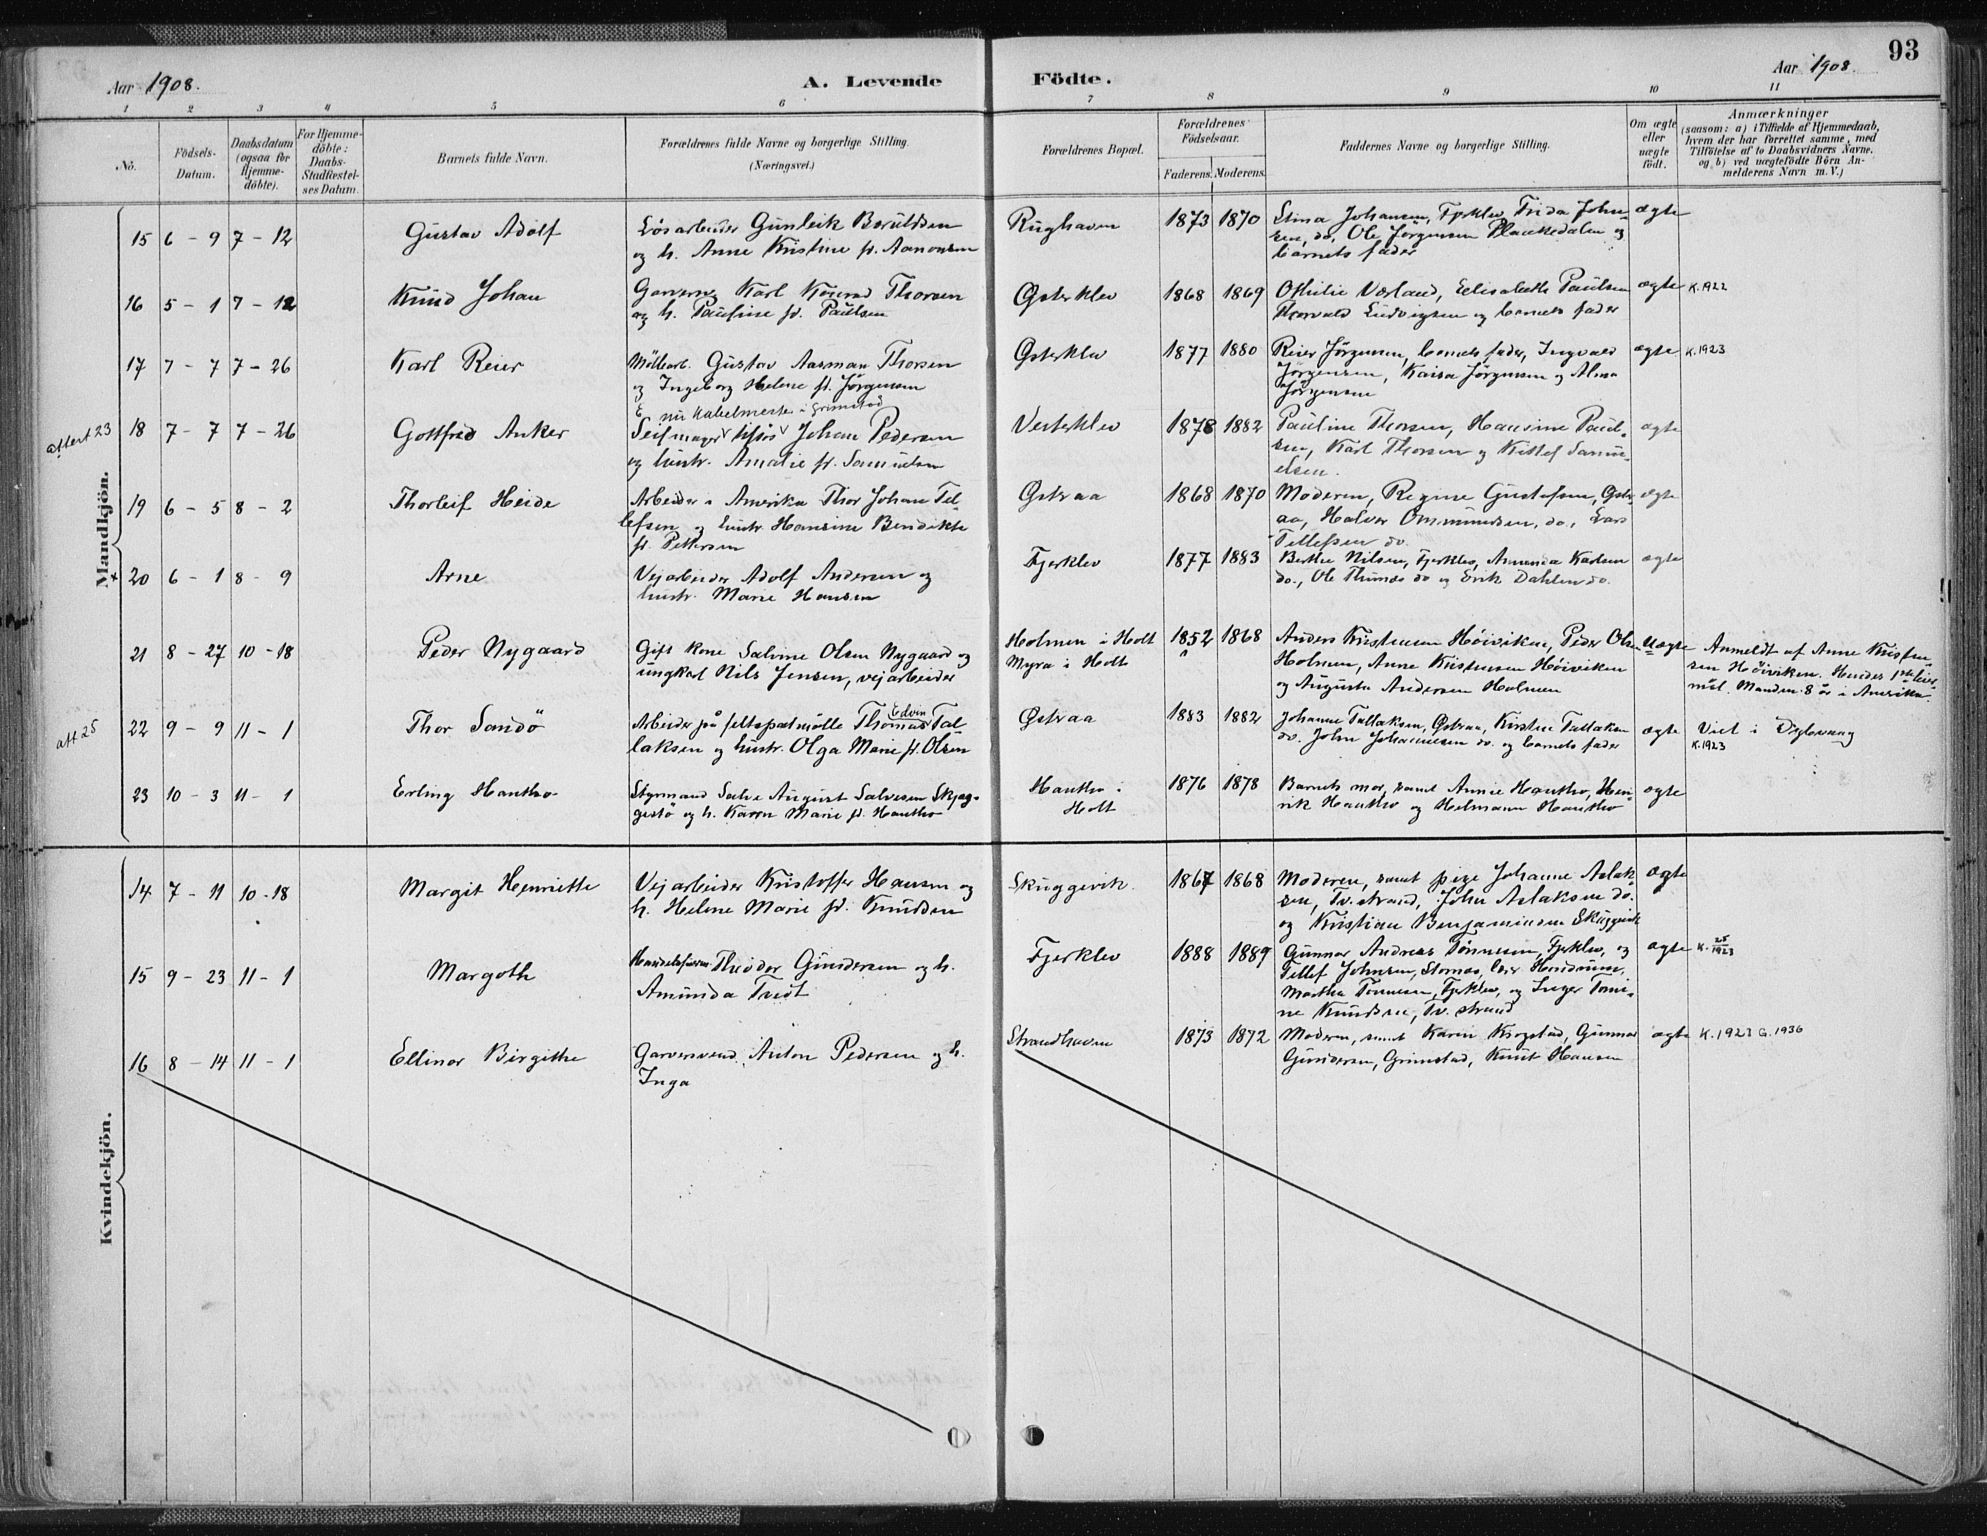 93
Aar 1908.
A. Levende
Födte.
Aar 1908.
1 2 3 4 5 6 7 8 9 10 11
No.
Födsels-
Datum.
Daabsdatum
(ogsaa for
Hjemme-
döbte).
For Hjemme-
döbte:
Daabs-
Stadfæstel-
ses Datum.
Barnets fulde Navn.
Forældrenes fulde Navne og borgerlige Stilling.
(Næringsvei.)
Forældrenes Bopæl.
Forældrenes
Födselsaar.
Faderens. Moderens.
Faddernes Navne og borgerlige Stilling.
Om ægte
eller
uægte
födt.
Anmærkninger
(saasom: a) i Tilfælde af Hjemmedaab,
hvem der har forrettet samme, med
Tilföielse af to Daabsvidners Navne,
og b) ved uægtefödte Börn An-
melderens Navn m. V.)
Mandkjön.
15 6 - 9 7 - 12 Gustav Adolf
Lösarbeider Gunleik Beruldsen
og h. Anne Kristine f. Aanonsen
Rughaven 1873 1870
Stina Johansen, Fjerklev, Frida John-
sen, do, Ole Jörgensen Plankedalen og
barnets fader
ægte
16 5 - 1 7 - 12 Knud Johan
Garversv. Karl Konrad Thorsen
og h. Pauline f. Paulsen
Østerklev 1868 1869
Othilie Værland, Elisabeth Paulsen
Thorvald Ludvigsen og barnets fader
ægte K.1922
17 7 - 7 7 - 26 Karl Reier
Möllearb. Gustav Aasman Thorsen
og Ingeborg Helene f. Jörgensen
Østerklev 1877 1880
Reier Jörgensen, barnets fader, Ingvald
Jörgensen, Kaisa Jörgensen og Alma
Jörgensen
ægte K.1923
attest 23
18 7 - 7 7 - 26 Gottfred Anker
nu Kabelmester i Grimstad
Seilmager Johan Pedersen
og hustr. Amalie f. Samuelsen
Vesterklev 1878 1882
Pauline Thorsen, Hansine Paul-
sen, Karl Thorsen og Kittel Samu-
elsen.
ægte
19 6 - 5 8 - 2 Thorleif Heide
Arbeider i Amerika Thor Johan Tel-
lefsen og hustr. Hansine Bendikte
f. Pettersen
Østraa 1868 1870
Moderen, Regine Gustafsen, Østr-
aa, Halvor Ommundsen, do, Lars
Tellefsen do.
ægte
+ 20 6 - 1 8 - 9 Arne
Vejarbeider Adolf Andersen og
hustr. Marie Hansen
Fjerklev 1877 1883
Berthe Nilsen, Fjerklev, Amanda Karlsen
do., Ole Thomas do og Erik Dahlen do.
ægte
21 8 - 27 10 - 18 Peder Nygaard
Gift kone Salvine Olsen Nygaard og
ungkarl Nils Jensen, vejarbeider
Holmen i Holt
Myra i Holt
1852 1868
Anders Kristensen Høiviken, Peder Olsen
Holmen, Anne Kristensen Høiviken
og Augusta Andersen Holmen
Uægte
Anmeldt af Anne Kristen-
sen Høiviken. Hendes 1ste leier-
mål. Manden 8 år i Amerika.
att 25
22 9 - 9 11 - 1 Thor Sandö
Edvin
Arbeider på feltspatmølle Thomas Tal-
laksen og hustr. Olga Marie f. Olsen
Østraa 1883 1882
Johanne Tallaksen, Østraa, Kirstine Tallaksen
do. John Johannesen do. og barnets fader
ægte
Viet i Dybvaag
K.1923
23 10 - 3 11 - 1 Erling Hantho
Styrmand Salve August Salvesen Skjeg-
gestø og h. Karen Marie f. Hantho
Hantho i
Holt
1876 1878
Barnets mor, samt Annie Hantho, Hen-
rik Hantho og Helmann Hantho
ægte
Kvindekjön.
14 7 - 11 10 - 18 Margit Henriette
Vejarbeider Kristoffer Hansen og
h. Helene Marie f. Knudsen
Skuggevik. 1867 1868
Moderen, samt pige Johanne Aslak-
sen, Tv.strand, John Aslaksen do.
og Kristian Benjaminsen Skuggevik
ægte
15 9 - 23 11 - 1 Margoth
Theodor Gundersen og h.
Amunda Tveit
Fjerklev 1888 1889
Gunnar Andreas Tönnesen, Fjerklev, og
Tellef Johnsen, Stornæs,
Martha Tönnesen, Fjerklev, og Inger Tomi-
ne Knudsen, Tv. strand
ægte K. 25/1923
16 8 - 14 11 - 1 Ellinor Birgithe
Garversvend Anton Pedersen og h.
Inga
Strandhaven 1873 1872
Moderen, samt Karen Kirstad, Gunnar
Gundersen, Grimstad, Knut Hansen
ægte K. 1923 G. 1936